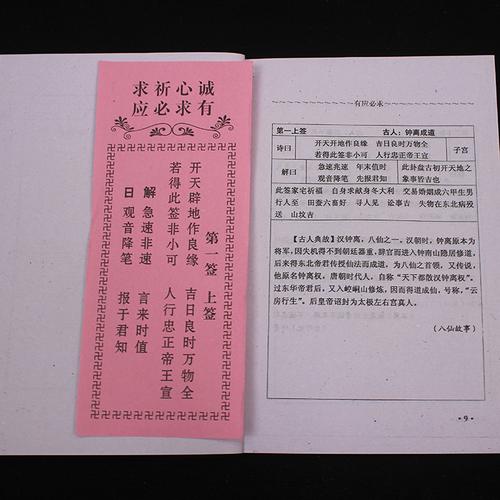 诚心祈求
有求必应
第一签 上签
开天辟地作良缘 吉日良时万物全
若得此签非小可 人行忠正帝王宣
解 急速非速 言来时值
曰 观音降笔 报于君知
有应必求
第一上签 古人：钟离成道
诗曰 开天开地作良缘 吉日良时万物全 子宫
若得此签非小可 人行忠正帝王宣
解曰 急速兆速 年未值时 此卦盘古初开天地之
观音降笔 先报君知 象事皆吉也
此签家宅祈福 自身求献身冬大利 交易婚姻成六甲生男
行人至 田蚕六畜好 寻人见 讼事吉 失物在东北病殁
送 山坟吉
【古人典故】汉钟离，八仙之一。汉朝时，钟离原本为
将军，因失机得不到朝廷器重，辞官而进入钟南山隐居修道，
后来得东北帝君传授仙法而成道，为八仙之首领，又传说，
他原名钟离权，唐朝时代人，自称“天下都散汉钟离权”。
过东华帝君后，又入崆峒山修炼，因而得道成仙，号称，“云
房行生”。后皇帝诏封为太极左右宫真人。
（八仙故事）
·9·